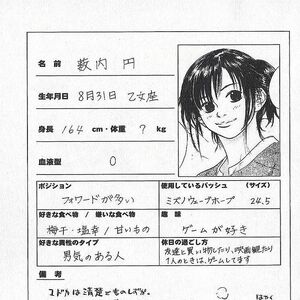 名前 薮内 円
生年月日 8月31日 乙女座
身長 164 cm・体重 ? kg
血液型 O
ポジション 使用しているバッシュ (サイズ)
フォワードが多い ミズノウェーブホープ 24.5
好きな食べ物 / 嫌いな食べ物 趣味
梅干・塩辛 / 甘いもの ゲームが好き
好きな異性のタイプ 休日の過ごし方
男気のある人 友達と買い物したり、映画観たり
1人のときは、ゲームしてます
備考